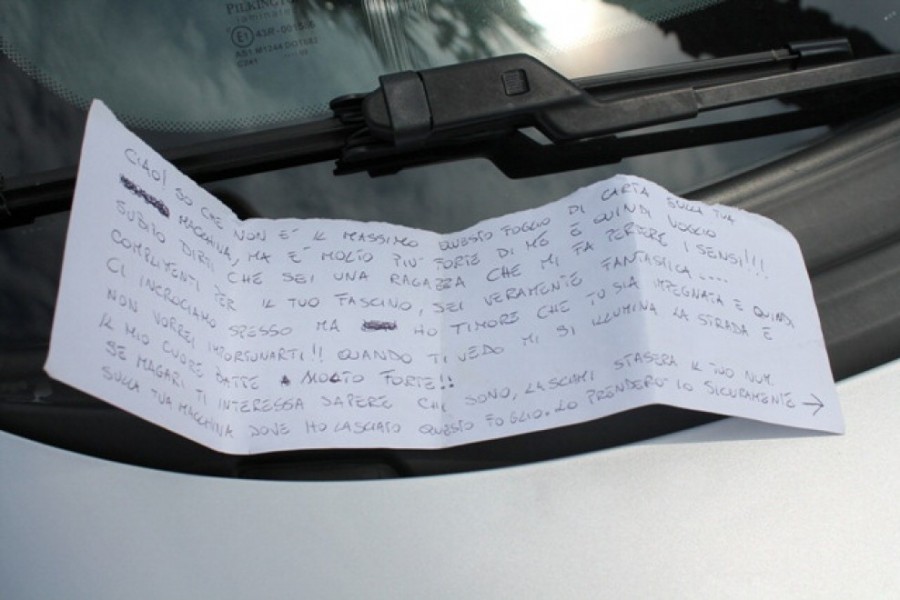 PILKINGTON
E1 43R-00
AS1 M1244 DOT682
CIAO! SO CHE NON È IL MASSIMO QUESTO FOGLIO DI CARTA SULLA TUA
MACCHINA, MA È MOLTO PIÙ FORTE DI ME E QUINDI VOGLIO
SUBITO DIRTI CHE SEI UNA RAGAZZA CHE MI FA PERDERE I SENSI!!!
COMPLIMENTI PER IL TUO FASCINO, SEI VERAMENTE FANTASTICA....
CI INCROCIAMO SPESSO MA HO TIMORE CHE TU SIA IMPEGNATA E QUINDI
NON VORREI IMPORTUNARTI!! QUANDO TI VEDO MI SI ILLUMINA LA STRADA E
IL MIO CUORE BATTE MOLTO FORTE!!
SE MAGARI TI INTERESSA SAPERE CHI SONO, LASCIAMI STASERA IL TUO NUM.
SULLA TUA MACCHINA DOVE HO LASCIATO QUESTO FOGLIO. LO PRENDERÒ IO SICURAMENTE →